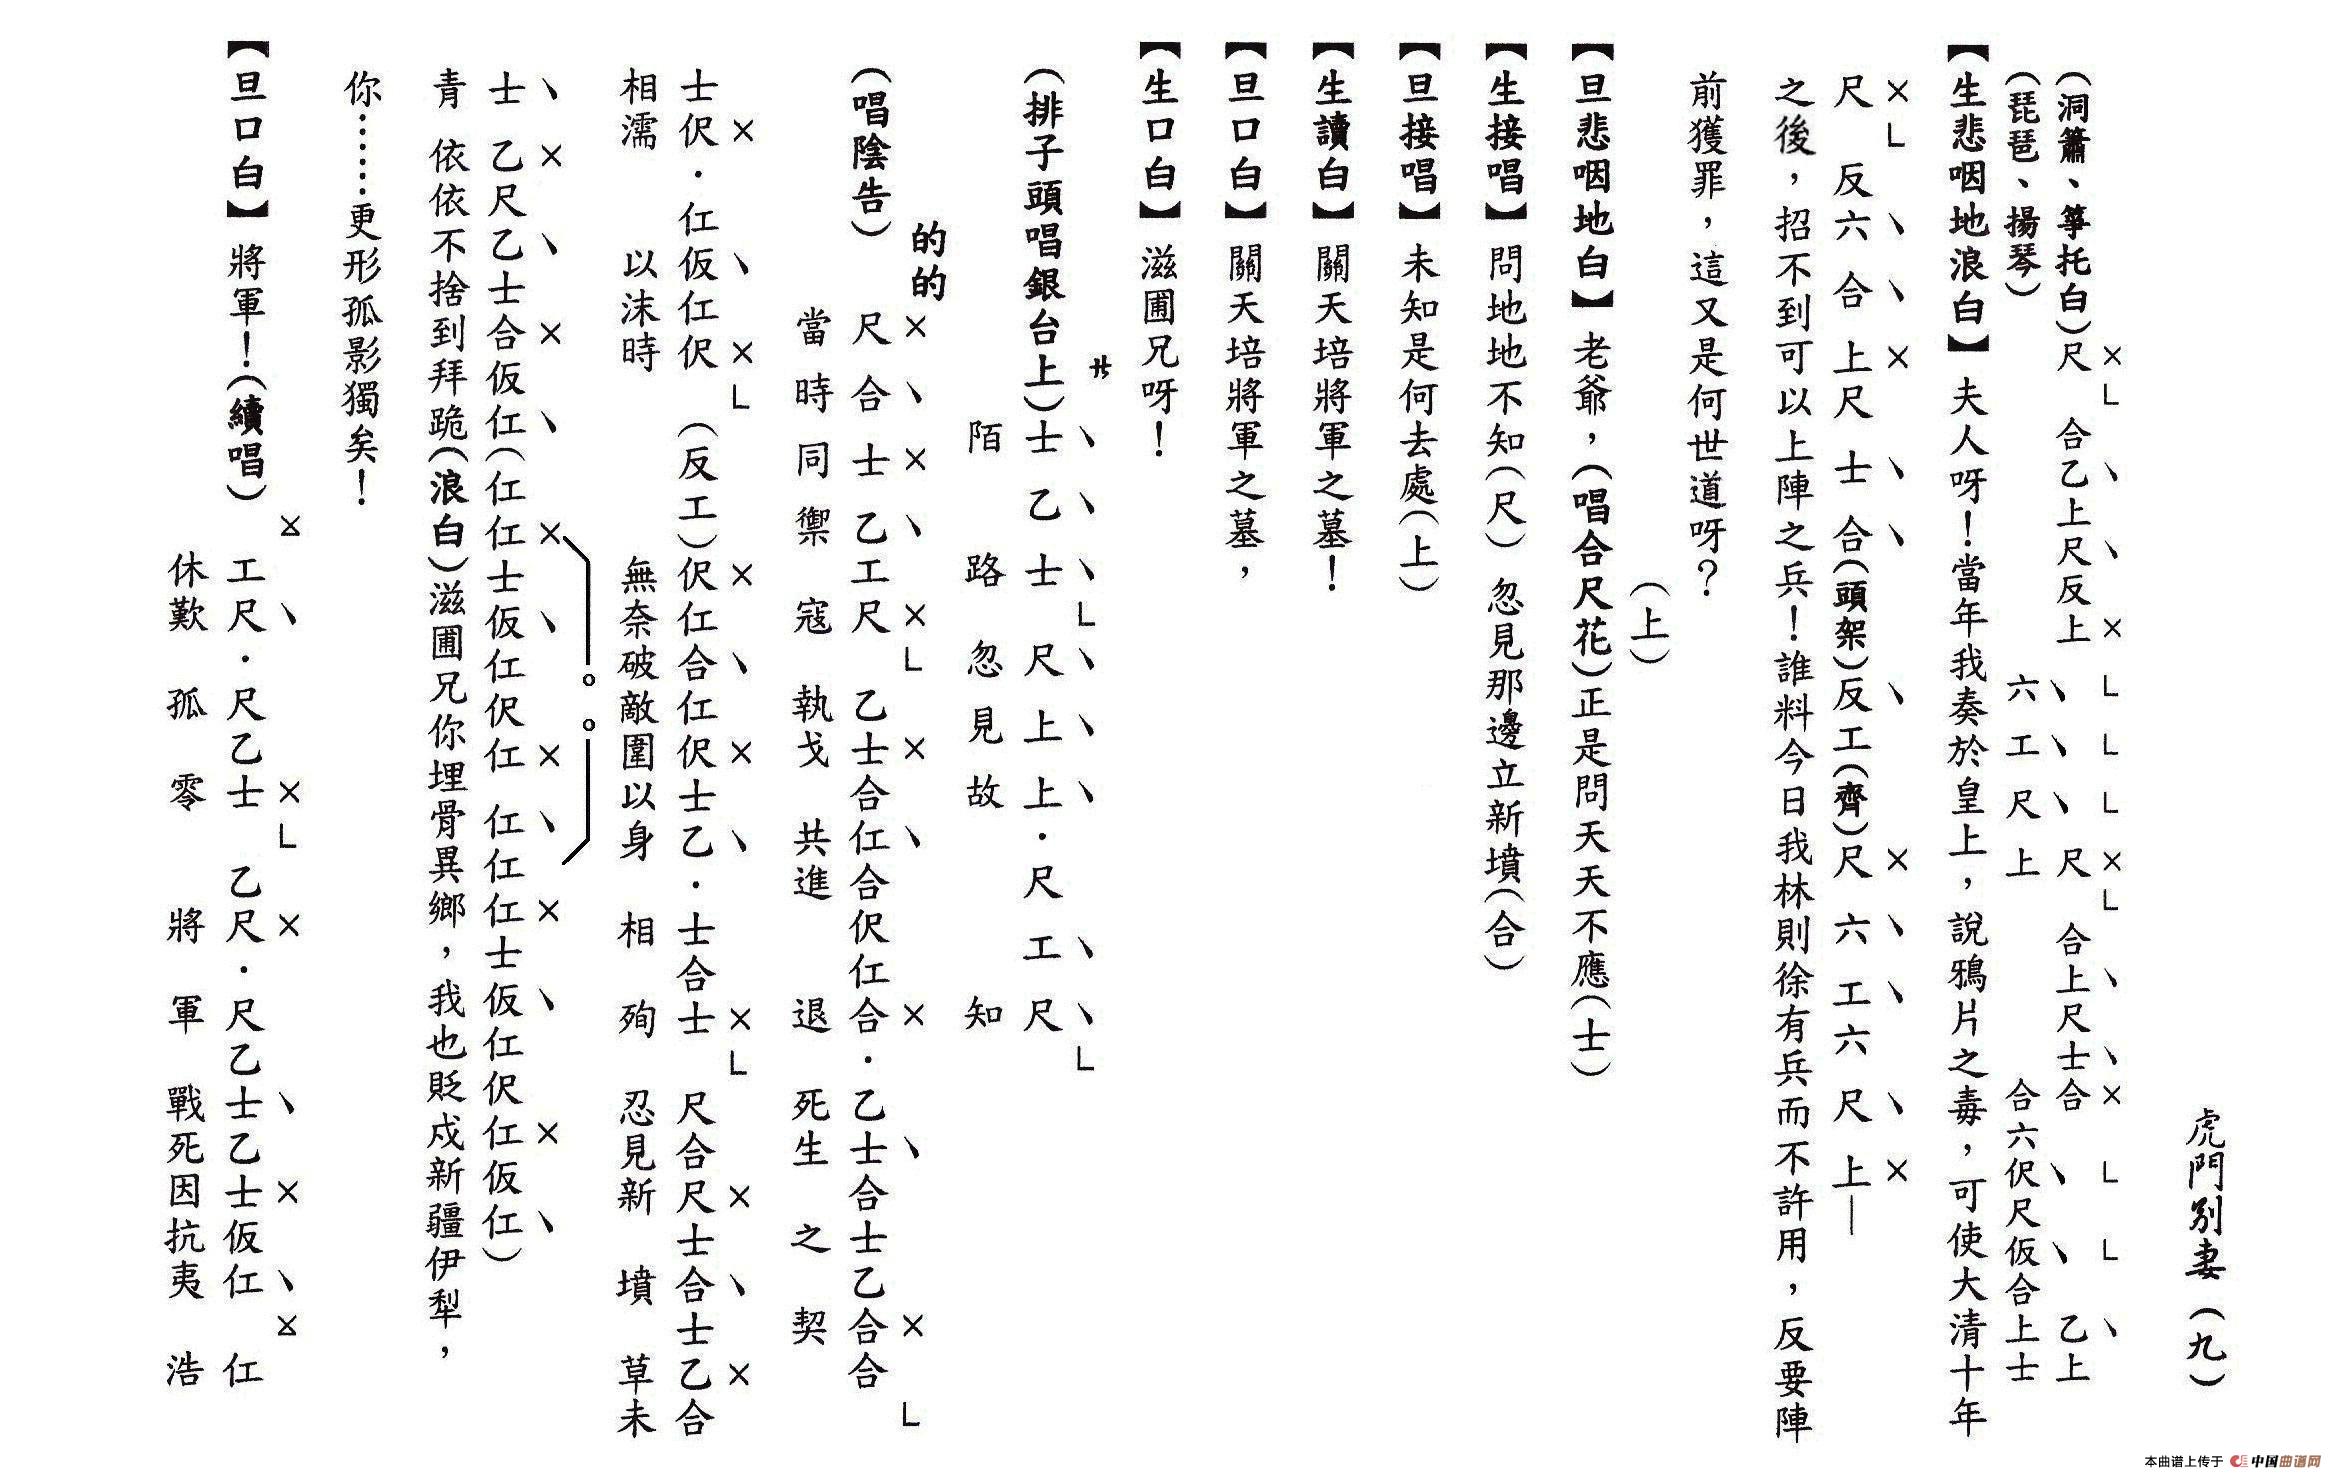 虎門別妻（九）
（洞簫、箏托白）尺 合乙上尺反上 尺 合上尺士合 乙上
（琵琶、揚琴） 六工尺上 合六伬尺仮合上士
【生悲咽地浪白】夫人呀！當年我奏於皇上，說鴉片之毒，可使大清十年
尺 反六合上尺士合（頭架）反工（齊）尺六工六尺上—
之後，招不到可以上陣之兵！誰料今日我林則徐有兵而不許用，反要陣
前獲罪，這又是何世道呀？
（上）
【旦悲咽地白】老爺，（唱合尺花）正是問天天不應（士）
【生接唱】問地地不知（尺）忽見那邊立新墳（合）
【旦接唱】未知是何去處（上）
【生讀白】關天培將軍之墓！
【旦口白】關天培將軍之墓，
【生口白】滋圃兄呀！
（排子頭唱銀台上）士乙士尺上上．尺工尺
陌路忽見故知
的的
（唱陰告） 尺合士乙工尺 乙士合仜合伬仜合．乙士合士乙合合
當時同禦寇執戈共進退死生之契
士伬．仜仮仜伬（反工）伬仜合仜伬士乙．士合士 尺合尺士合士乙合
相濡以沫時無奈破敵圍以身相殉忍見新墳草未
士乙尺乙士合仮仜（仜仜士仮仜伬仜 仜仜仜士仮仜伬仜仮仜）
青依依不捨到拜跪（浪白）滋圃兄你埋骨異鄉，我也貶戍新疆伊犁，
你……更形孤影獨矣！
【旦口白】將軍！（續唱）
工尺．尺乙士 乙尺．尺乙士乙士仮仜 仜
休歎孤零將軍戰死因抗夷浩
本曲谱上传于 中国曲谱网